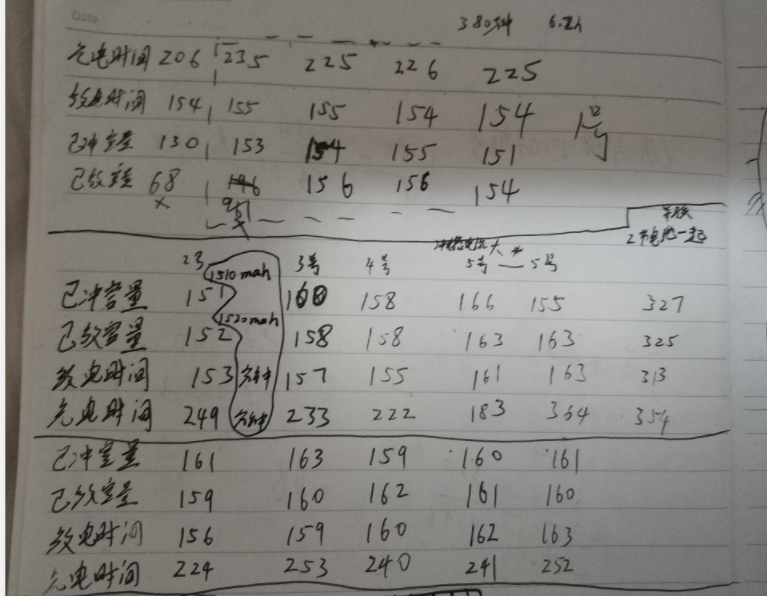 Date
380分钟 6.2h
充电时间 206 235 225 226 225
放电时间 154 155 155 154 154 1号
已冲容量 130 153 154 155 151
已放容量 68 156 156 154
961
2节电池一起
2号 3号 4号 5号 — 5号
1510mah
已冲容量 151 160 158 166 155 327
1520mah
已放容量 152 158 158 163 163 325
放电时间 153 分钟 157 155 161 163 313
充电时间 249 分钟 233 222 183 364 354
已冲容量 161 163 159 160 161
已放容量 159 160 162 161 160
放电时间 156 159 160 162 163
充电时间 224 253 240 241 252